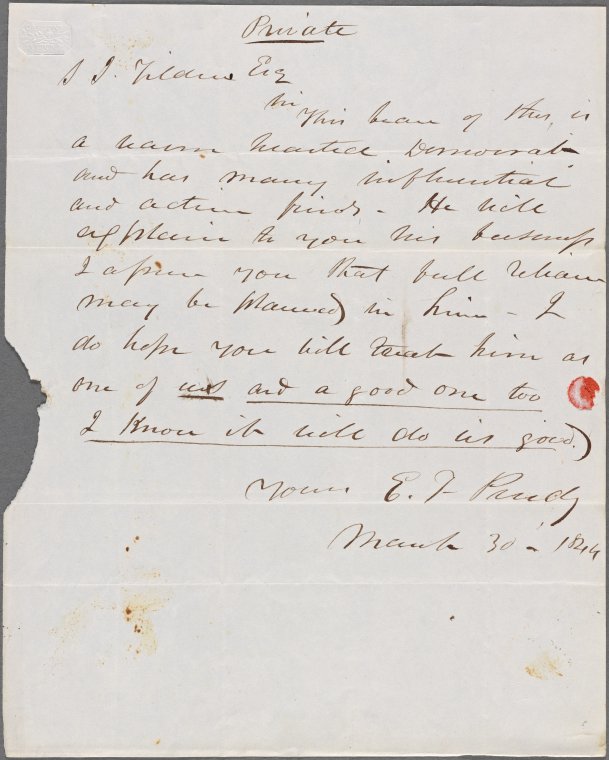 Private
S J. Tilden Esq
Sir
This bearer of this, is
a warm hearted Democrat
and has many influential
and active friends - He will
explain to you his business
I assure you that full reliance
may be placed in him - I
do hope you will treat him as
one of us and a good one too
I Know it will do us good.
Yours E. F Purdy
March 30 - 1844